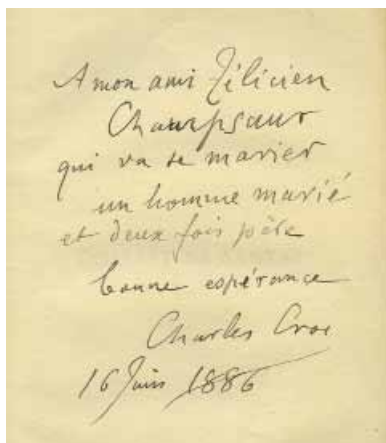 A mon ami Félicien
Champsaur
qui va se marier
un homme marié
et deux fois père
bonne espérance
Charles Cros
16 Juin 1886